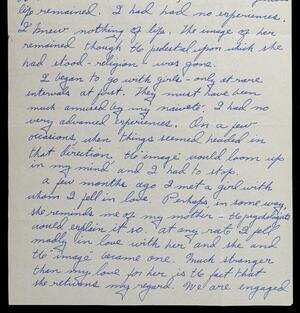 life remained. I had had no experiences.
I knew nothing of life. The image of her
remained though the pedestal upon which she
had stood - religion - was gone.
I began to go with girls - only at rare
intervals at first. They must have been
much amused by my naivete. I had no
very advanced experiences. On a few
occasions, when things seemed headed in
that direction, the "image" would loom up
in my mind and I had to stop.
a few months ago I met a girl with
whom I fell in love. Perhaps in some way,
she reminds me of my mother - the psychologists
would explain it so. at any rate I fell
madly in love with her and she and
the "image" became one. Much stranger
than my love for her is the fact that
she returns my regard. We are engaged